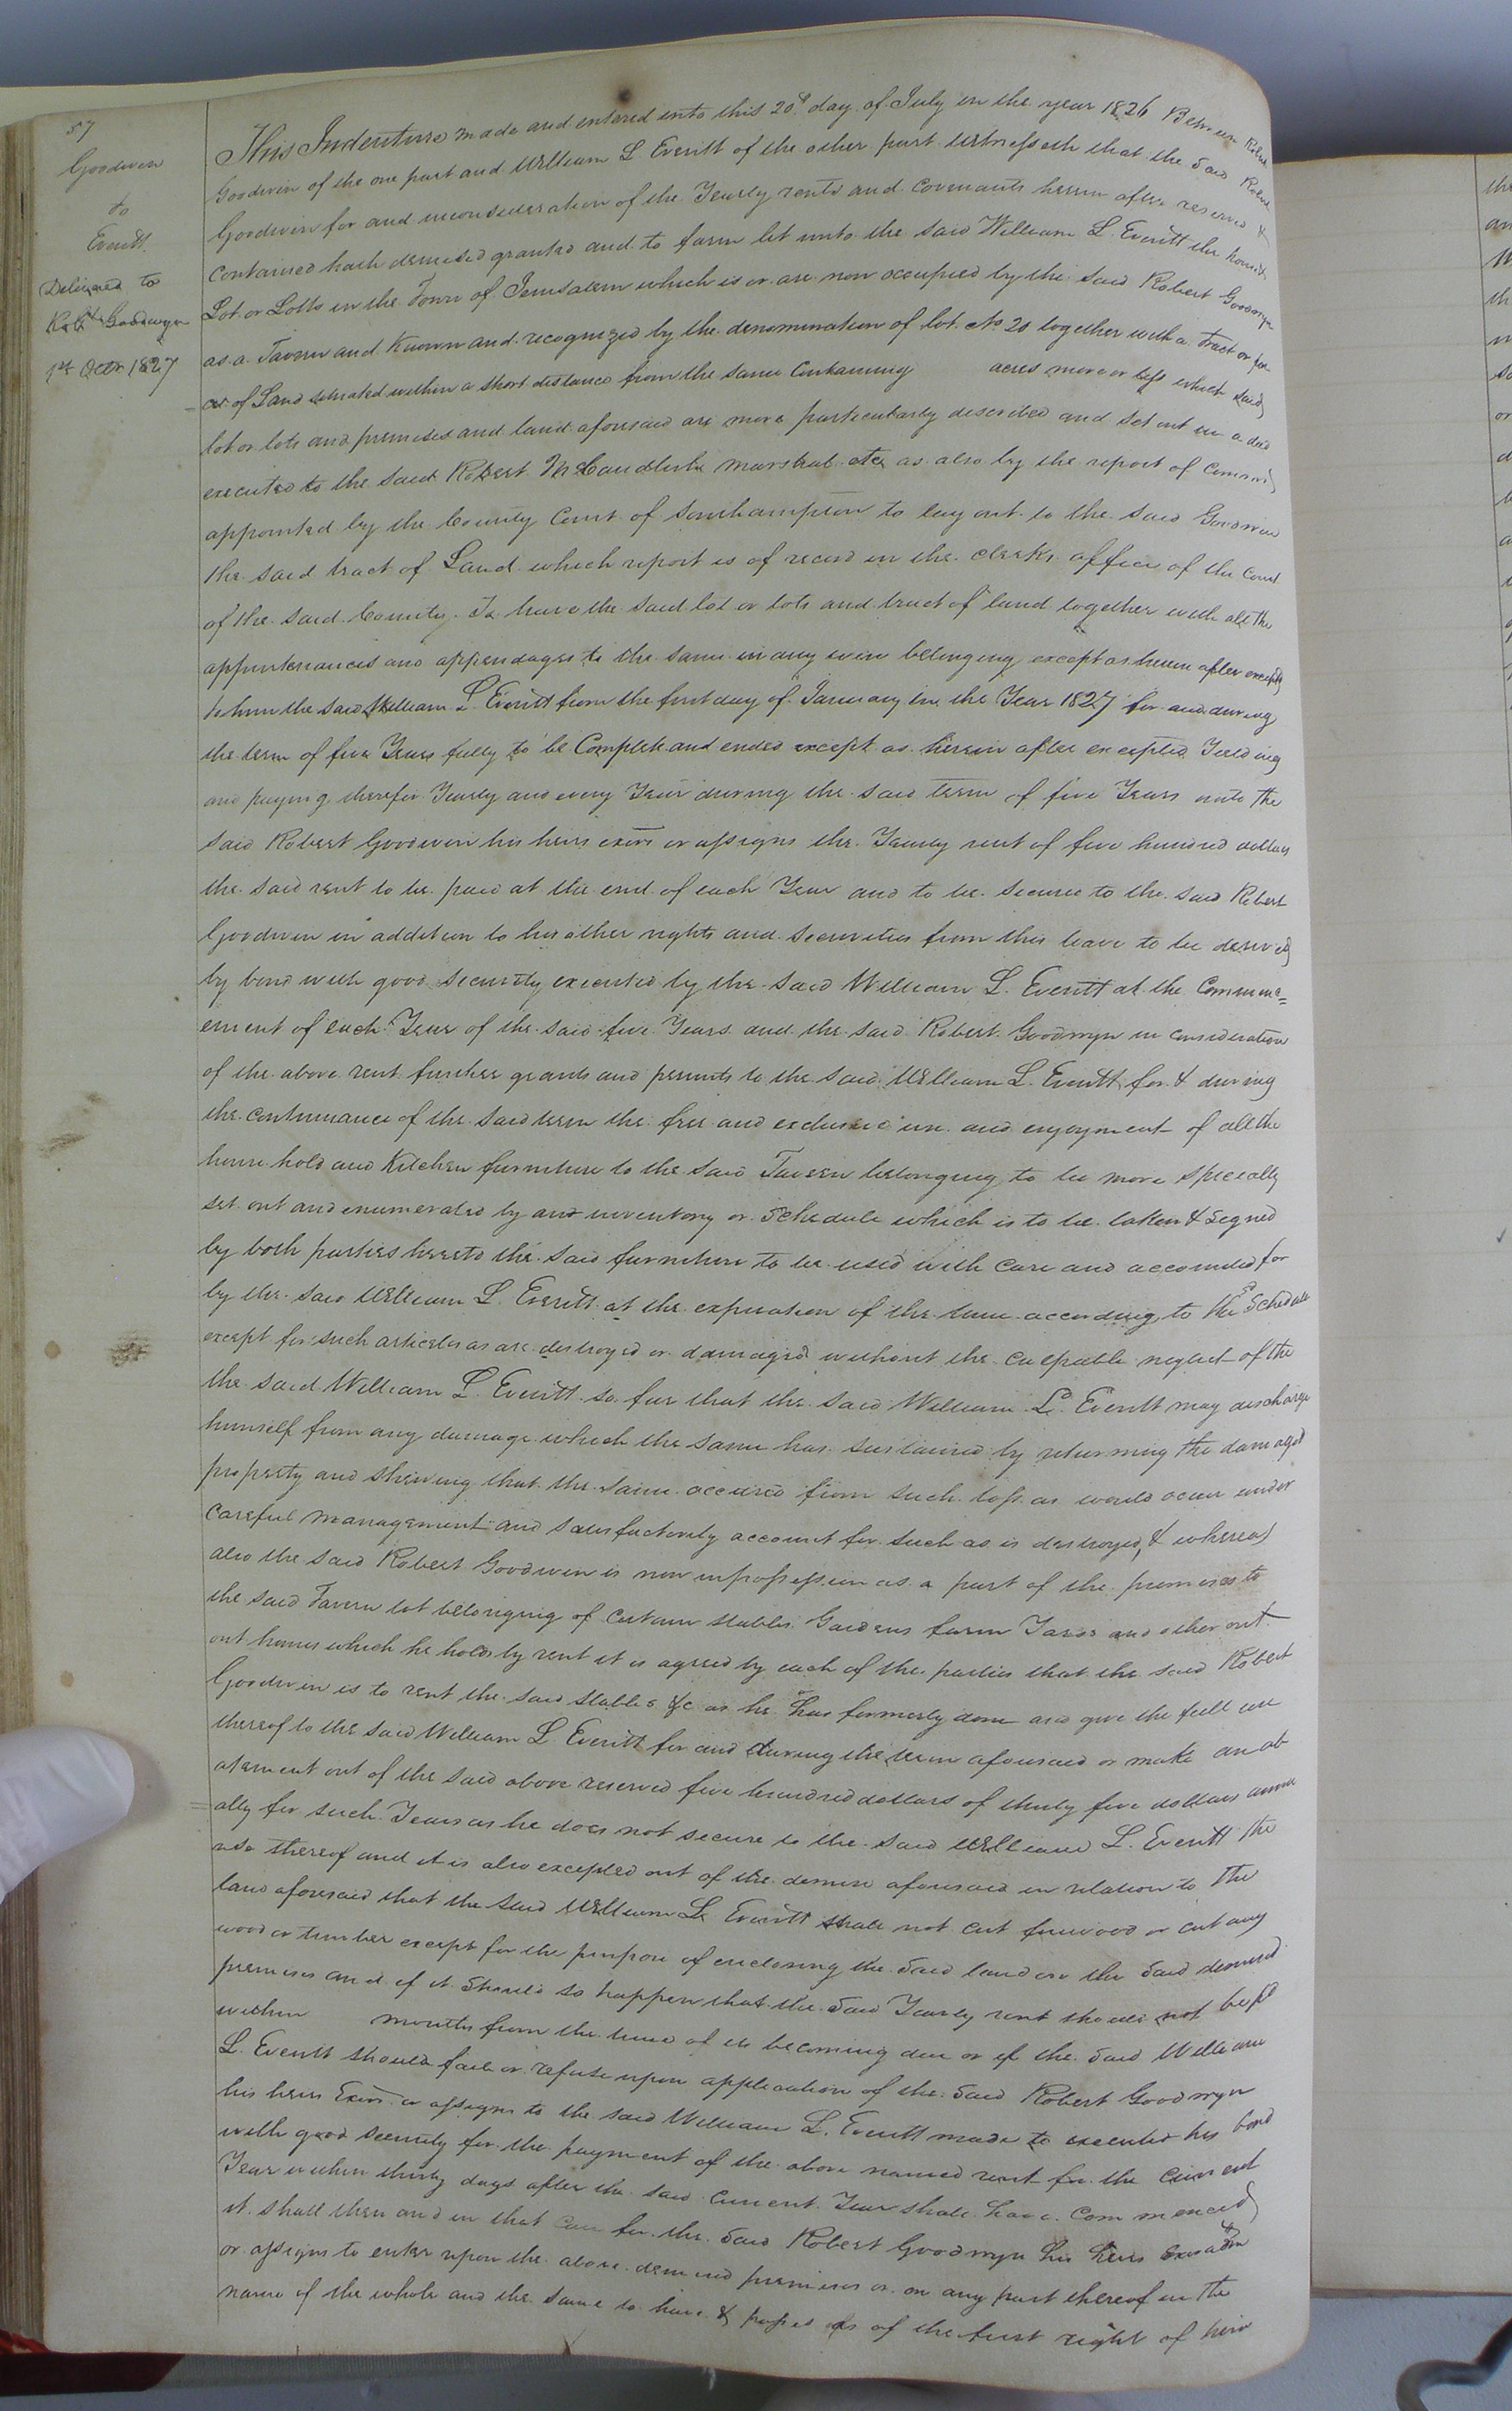 57
Goodwin
to
Everitt
Delivered to
Robt Goodwyn
1st Octr 1827
This Indenture made and entered into this 20th day of July in the year 1826 Between Robert
Goodwin of the one part and William L Everitt of the other part witnesseth that the said Robert
Goodwin for and inconsideration of the Yearly rents and Covenants herein after reserved &
contained hath demised granted and to farm let unto the said William L. Everitt the houses
Lot or Lotts in the Town of Jerusalem which is or are now occupied by the said Robert Goodwyn
as a Tavern and Known and recognized by the denomination of lot No 20 together with a tract or par
cel of Land situated within a short distance from the same Containing acres more or less which said
lot or lots and premises and land aforesaid are more particularly described and set out in a deed
executed to the said Robert McCandlish marshal etc as also by the report of Commrs
appointed by the County Court of Southampton to lay out to the said Goodwin
the said tract of Land which report is of record in the clerks office of the Court
of the said County. To have the said lot or lots and tract of land together with all the
appurtenances and appendages to the same in any wise belonging except as herein after excepted
to him the said William L. Everitt from the first day of January in the Year 1827 for and during
the term of five Years fully to be Complete and ended except as herein after excepted Yeilding
and paying therefor Yearly and every Year during the said term of five Years unto the
said Robert Goodwin his heirs exors or assigns the Yearly rent of five hundred dollars
the said rent to be paid at the end of each Year and to be secured to the said Robert
Goodwin in addition to his other rights and securities from this leave to be derived
by bond with good security executed by the said William L. Everitt at the Commenc=
ement of each Year of the said five Years and the said Robert Goodwyn in consideration
of the above rent further grants and permits to the said William L. Everitt for & during
the continuance of the said term the free and exclusive use and enjoyment of all the
house hold and Kitchen furniture to the said Tavern belonging to be more specially
set out and enumerated by and inventory or Schedule which is to be taken & signed
by both parties hereto the said furniture to be used with care and accounted for
by the said William L. Everitt at the expiration of the same according to the sd Schedule
except for such articles as are destroyed or damaged without the culpable neglect of the
the said William L. Everitt so far that the said William L. Everitt may discharge
himself from any damage which the same has sustained by returning the damaged
property and shewing that the same accured from such loss as would occur under
careful management and satisfactorily account for such as is destroyed, & whereas
also the said Robert Goodwin is now inpossession as a part of the premises to
the said Tavern lot belonging of certain stables Gardens farm Yards and other out
out houses which he holds by rent it is agreed by each of the parties that the said Robert
Goodwin is to rent the said stables &c as he has formerly done and give the full use
thereof to the said William L Everitt for and during the term aforesaid or make an ab
atement out of the said above reserved five hundred dollars of thirty five dollars annu
=ally for such Years as he does not secure to the said William L. Everitt the
use thereof and it is also excepted out of the demise aforesaid in relation to the
land aforesaid that the said William L. Everitt shall not cut firewood or cut any
wood or timber except for the purpose of enclosing the said land or the said demised
premises and if it should so happen that the said Yearly rent should not be pd
within months from the time of its becoming due or if the said William
L. Everitt should fail or refuse upon application of the said Robert Goodwyn
his heirs Exors or assigns to the said William L. Everitt made to executed his bond
with good security for the payment of the above named rent for the current
Year within thirty days after the said current Year shall have commenced
it shall then and in that case for the said Robert Goodwyn his heirs Exors & adm
or assigns to enter upon the above demised premises or on any part thereof in the
name of the whole and the same to have & possess as of the first right of him